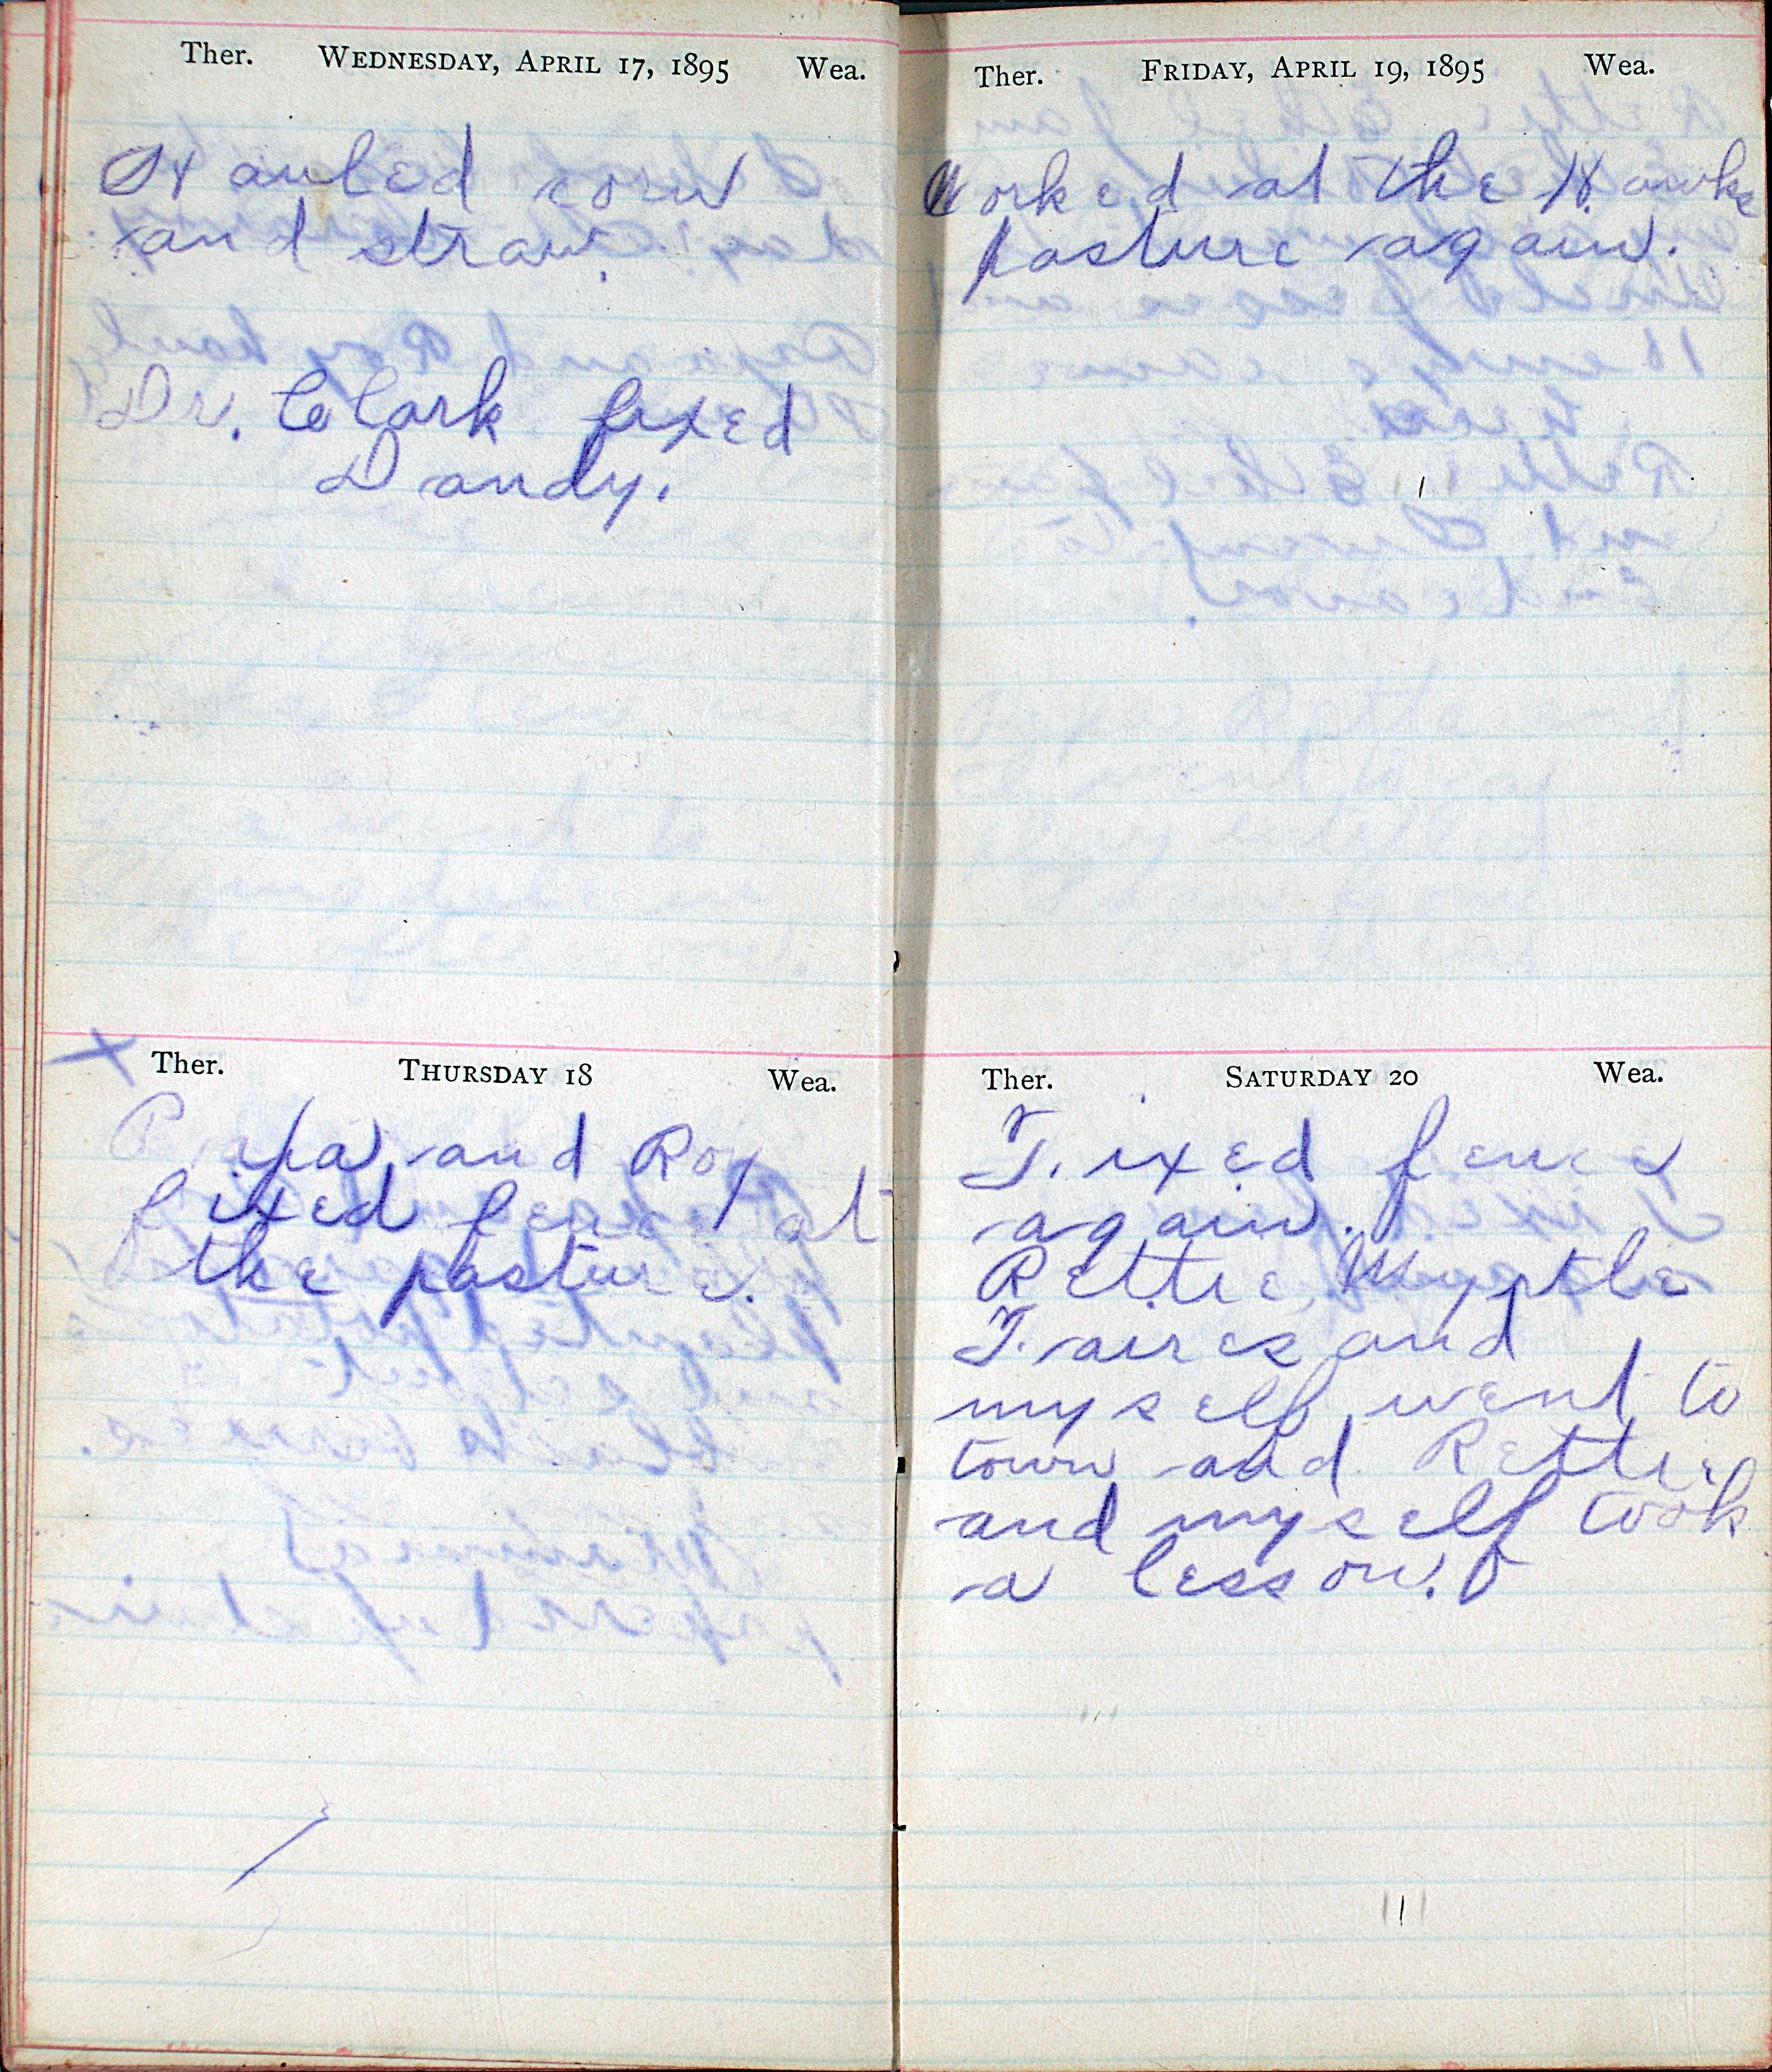 Ther. WEDNESDAY, APRIL 17, 1895 Wea.
Hauled corn
and straw.
Dr. Clark fixed
Dandy.
Ther. THURSDAY 18 Wea.
Papa and Roy
fixed fence at
the pasture.
Ther. FRIDAY, APRIL 19, 1895 Wea.
Worked at the Hawks
pasture again.
Ther. SATURDAY 20 Wea.
Fixed fence
again.
Rettie, Myrtle
Faires and
myself went to
town and Rettie
and myself took
a lesson.